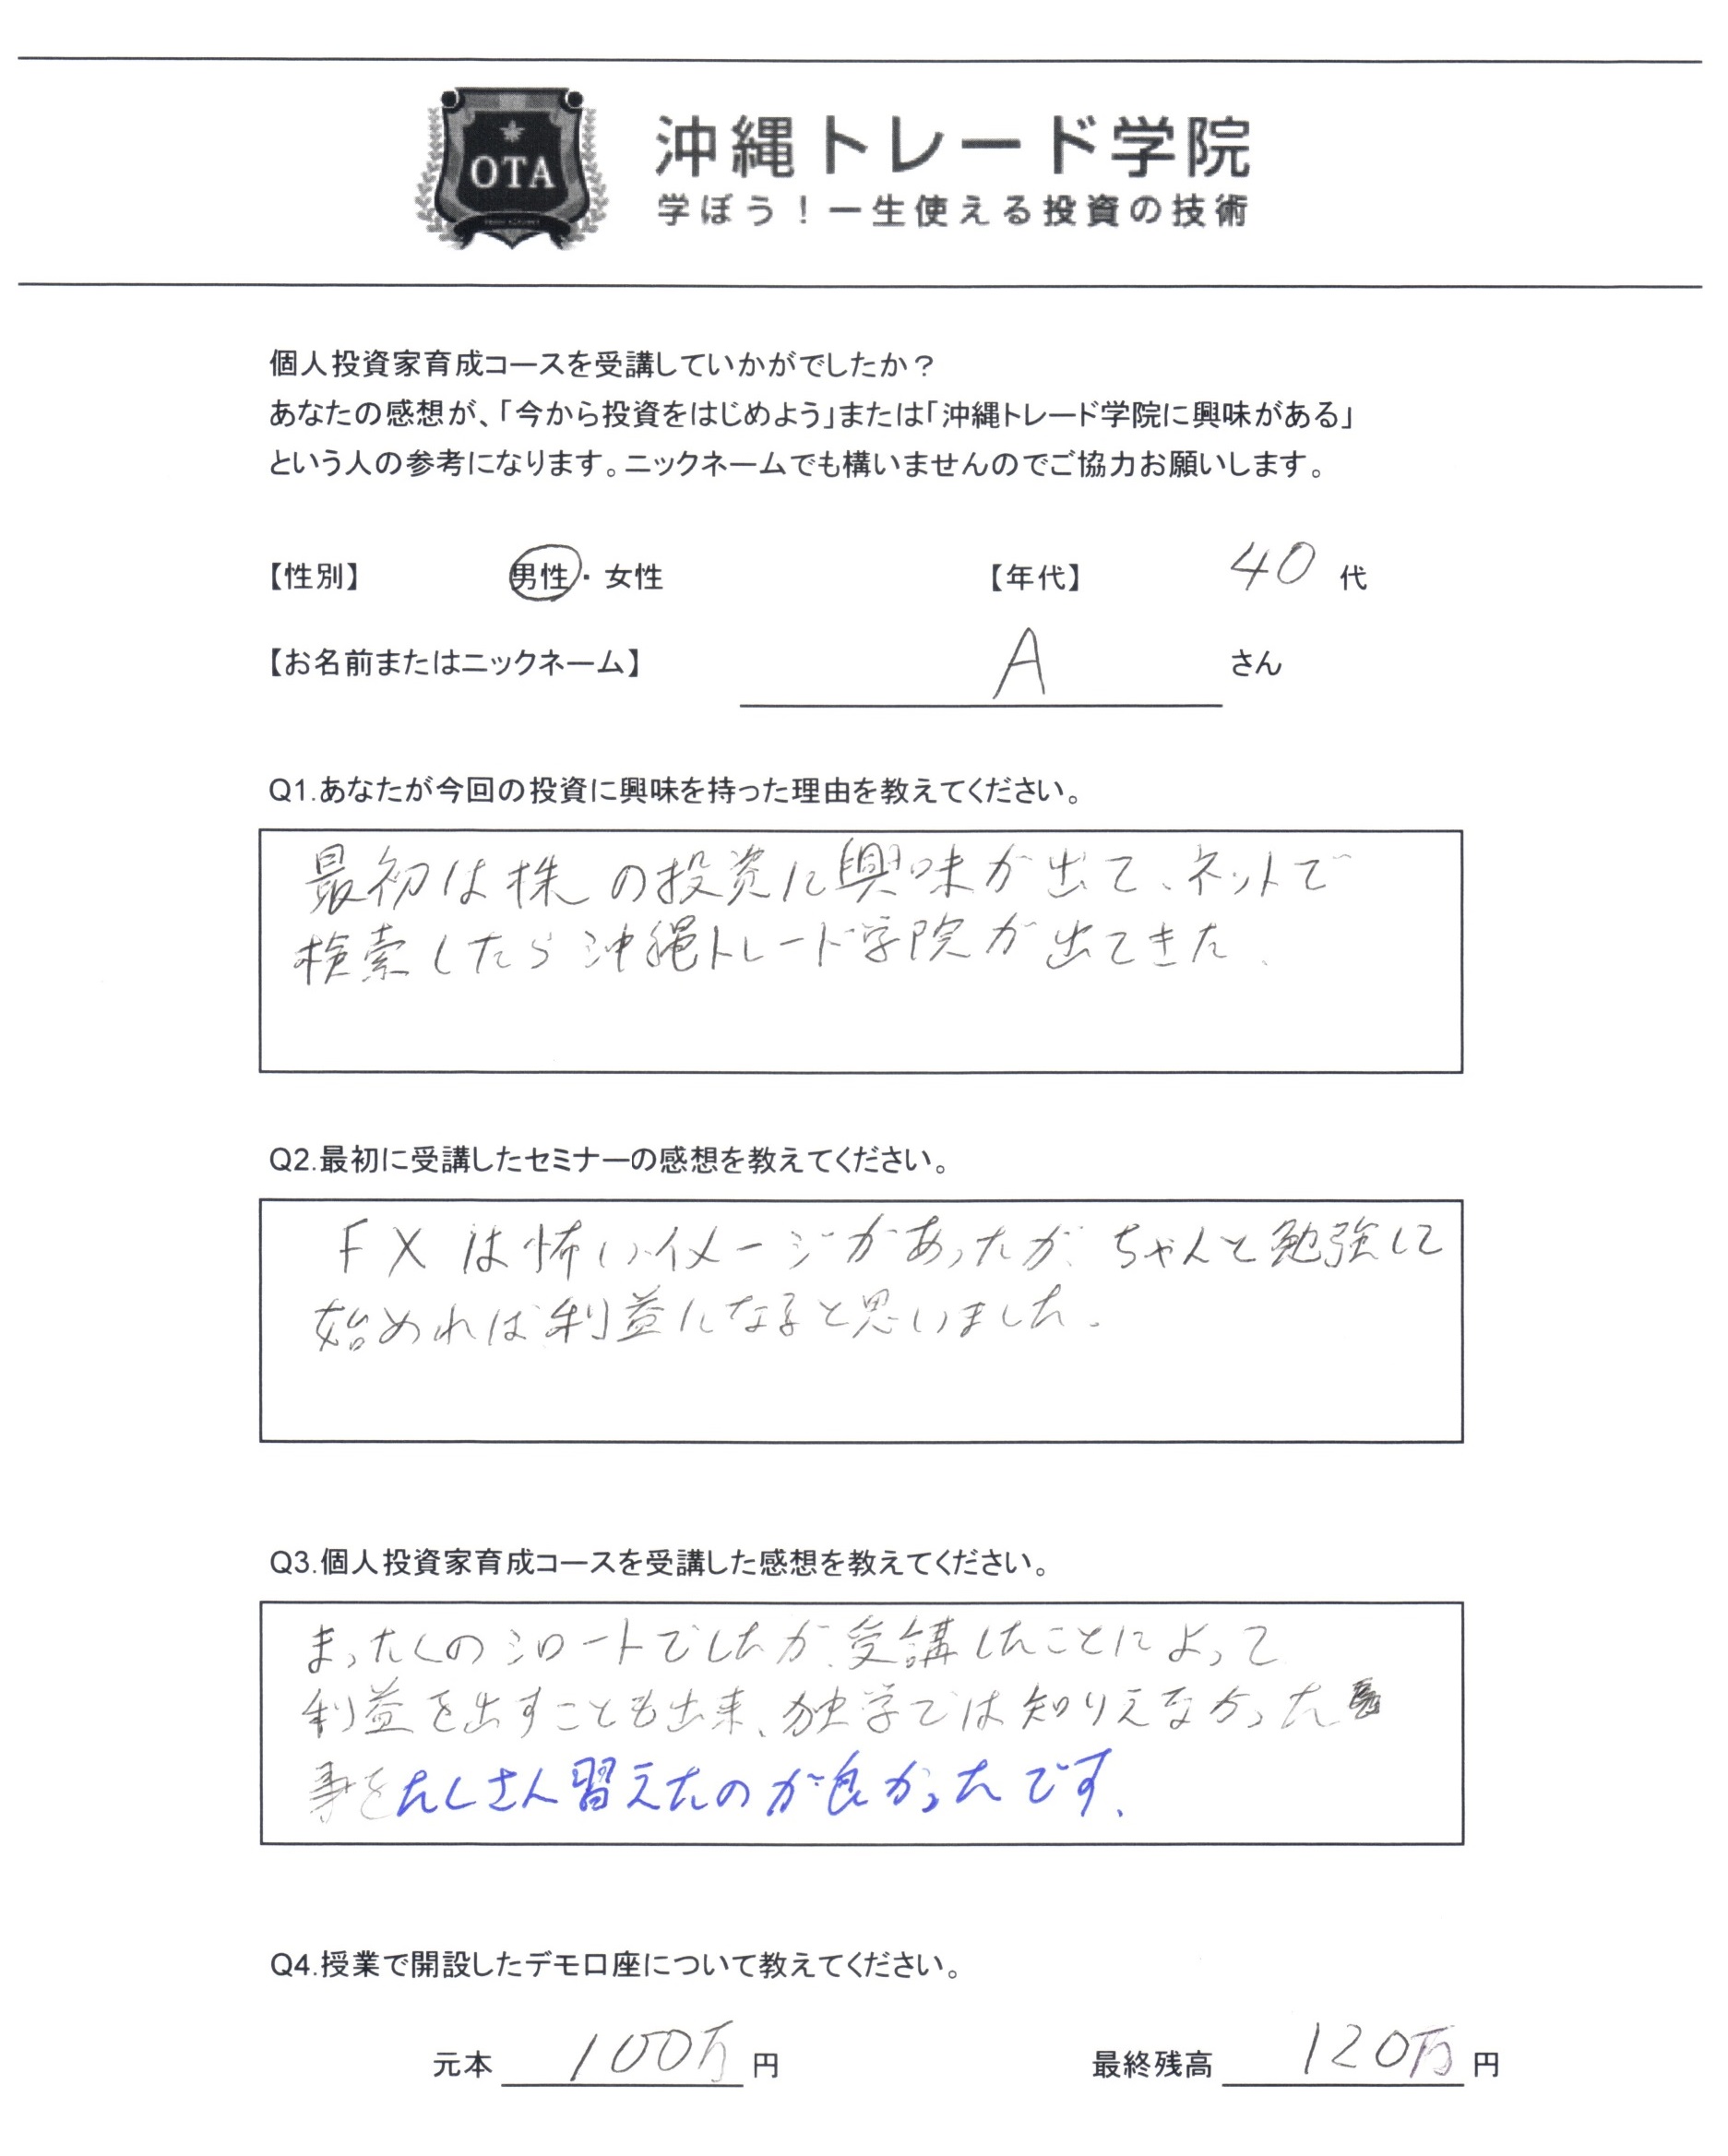 OTA
沖縄トレード学院
学ぼう！一生使える投資の技術
個人投資家育成コースを受講していかがでしたか？
あなたの感想が、「今から投資をはじめよう」または「沖縄トレード学院に興味がある」
という人の参考になります。ニックネームでも構いませんのでご協力お願いします。
【性別】 男性・女性 【年代】 40代
【お名前またはニックネーム】 A さん
Q1.あなたが今回の投資に興味を持った理由を教えてください。
最初は株の投資に興味が出て、ネットで
検索したら沖縄トレード学院が出てきた、
Q2.最初に受講したセミナーの感想を教えてください。
FXは怖いイメージがあったが、ちゃんと勉強して
始めれば利益になると思いました。
Q3.個人投資家育成コースを受講した感想を教えてください。
まったくのシロートでしたが、受講したことによって
利益を出すことも出来、独学では知りえなかった
事をたくさん習えたのが良かったです、
Q4.授業で開設したデモ口座について教えてください。
元本 100万円 最終残高 120万円